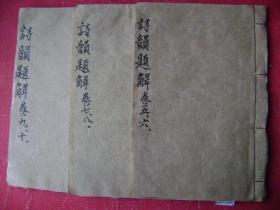 詩韻題解卷五、六、
詩韻題解卷七、八、
詩韻題解卷九、十、